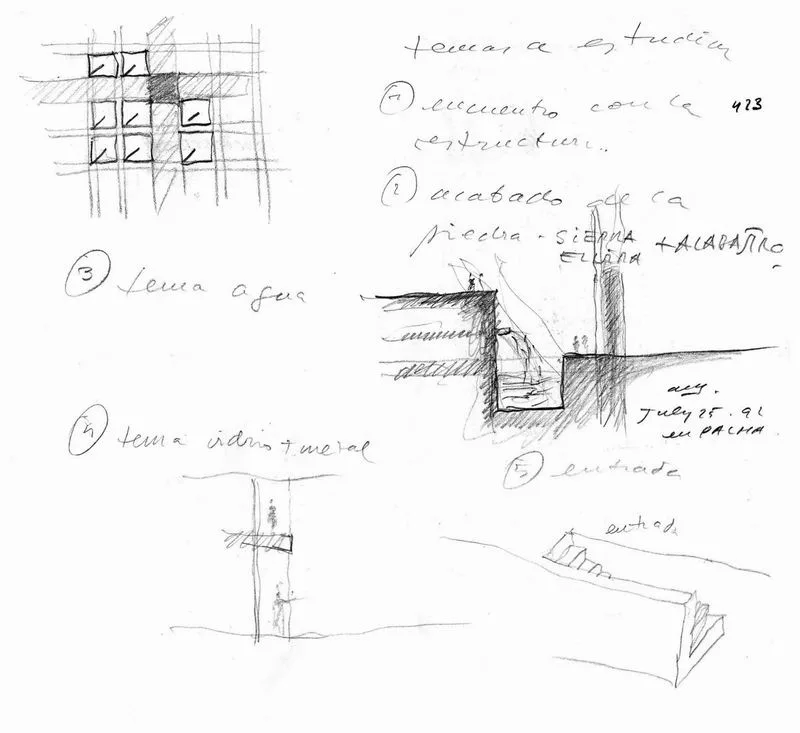 temas a estudiar
① encuentro con la 423
estructura..
② acabado de la
piedra - SIERRA + ALABASTRO
ELVIRA
③ tema agua
July 25 . 92
en PALMA.
④ tema vidrio + metal
⑤ entrada
entrada